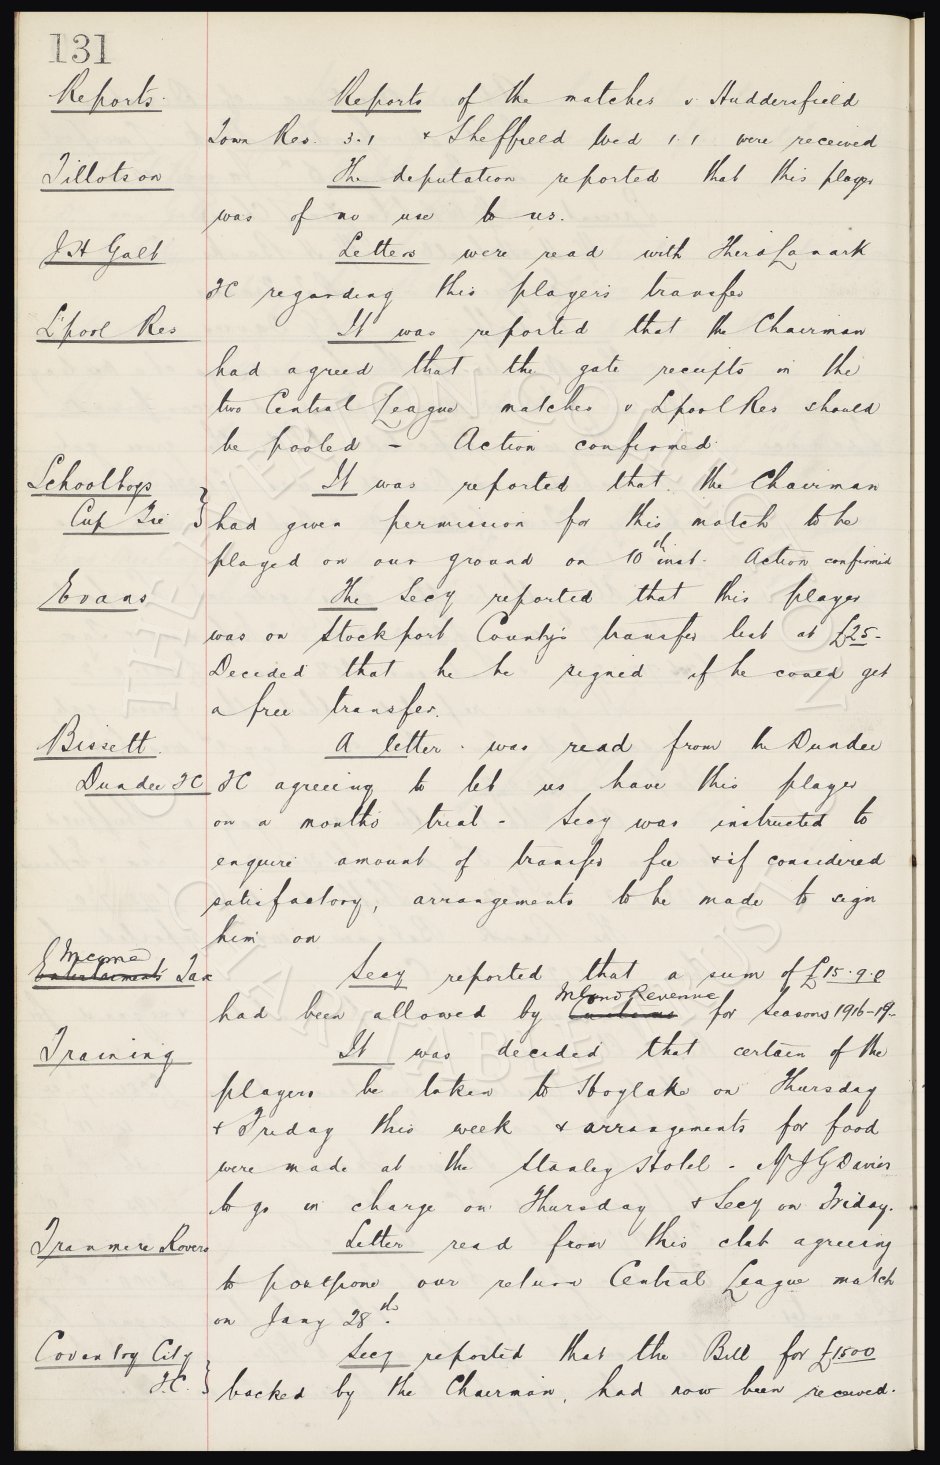 131
Reports. Reports of the matches v Huddersfield
Town Res. 3.1 & Sheffield Wed 1.1 were received
Tillotson The deputation reported that this player
was of no use to us.
J H Galt Letters were read with Third Lanark
FC regarding this player's transfer
L'pool Res It was reported that the Chairman
had agreed that the gate receipts in the
two Central League matches v Lpool Res should
be pooled - Action confirmed.
Schoolboys It was reported that the Chairman
Cup Tie } had given permission for this match to be
played on our ground on 10th inst. Action confirmed
Evans The Secy reported that this player
was on Stockport County's transfer list at £25-
Decided that he be signed if he could get
a free transfer.
Bissett. A letter was read from the Dundee
Dundee FC FC agreeing to let us have this player
on a month's trial - Secy was instructed to
enquire amount of transfer fee & if considered
satisfactory, arrangements to be made to sign
him on
Income
Entertainments Tax Secy reported that a sum of £15.9.0
Inland Revenue
had been allowed by Customs for Seasons 1916-19-
Training It was decided that certain of the
players be taken to Hoylake on Thursday
& Friday this week & arrangements for food
were made at the Stanley Hotel - Mr J G Davies
to go in charge on Thursday & Secy on Friday.
Tranmere Rovers Letter read from this club agreeing
to postpone our return Central League match
on Jany 28th.
Coventry City Secy reported that the Bill for £1500
F.C. } backed by the Chairman, had now been received.
THE EVERTON COLLECTION CHARITABLE TRUST